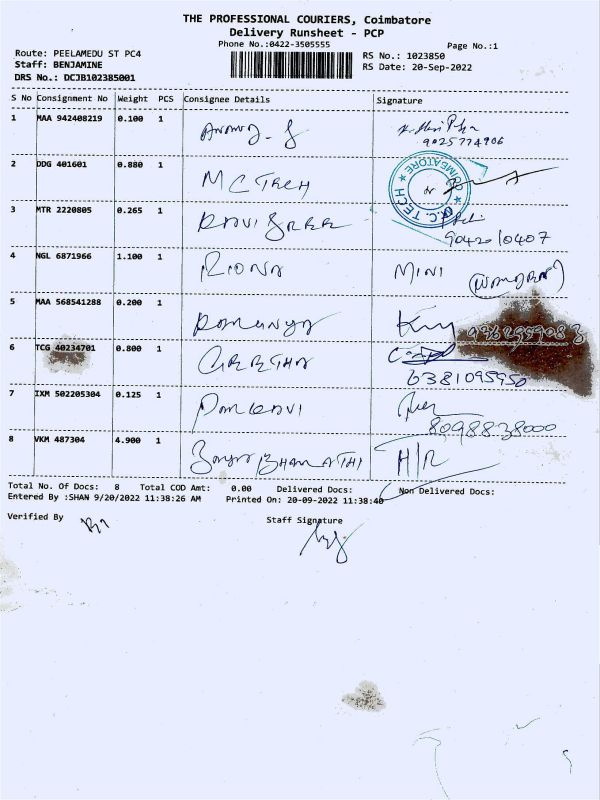 THE PROFESSIONAL COURIERS, Coimbatore
Delivery Runsheet - PCP
Phone No.:0422-3505555
Page No.:1
Route: PEELAMEDU ST PC4
Staff: BENJAMINE
DRS No.: DCJB102385001
RS No.: 1023850
RS Date: 20-Sep-2022
S No Consignment No Weight PCS Consignee Details Signature
1 MAA 942408219 0.100 1
9025774906
2 DDG 401601 0.880 1 MC TECH
COIMBATORE
M.C. TECH
3 MTR 2220805 0.265 1 RAVISREE
9042010407
4 NGL 6871966 1.100 1 MINI
5 MAA 568541288 0.200 1
6 TCG 40234701 0.800 1 GEETHA
6381095950
7 IXM 502205304 0.125 1
8098838000
8 VKM 487304 4.900 1 BHARATHI H/R
Total No. Of Docs: 8 Total COD Amt: 0.00 Delivered Docs: Non Delivered Docs:
Entered By :SHAN 9/20/2022 11:38:26 AM Printed On: 20-09-2022 11:38:40
Verified By Staff Signature